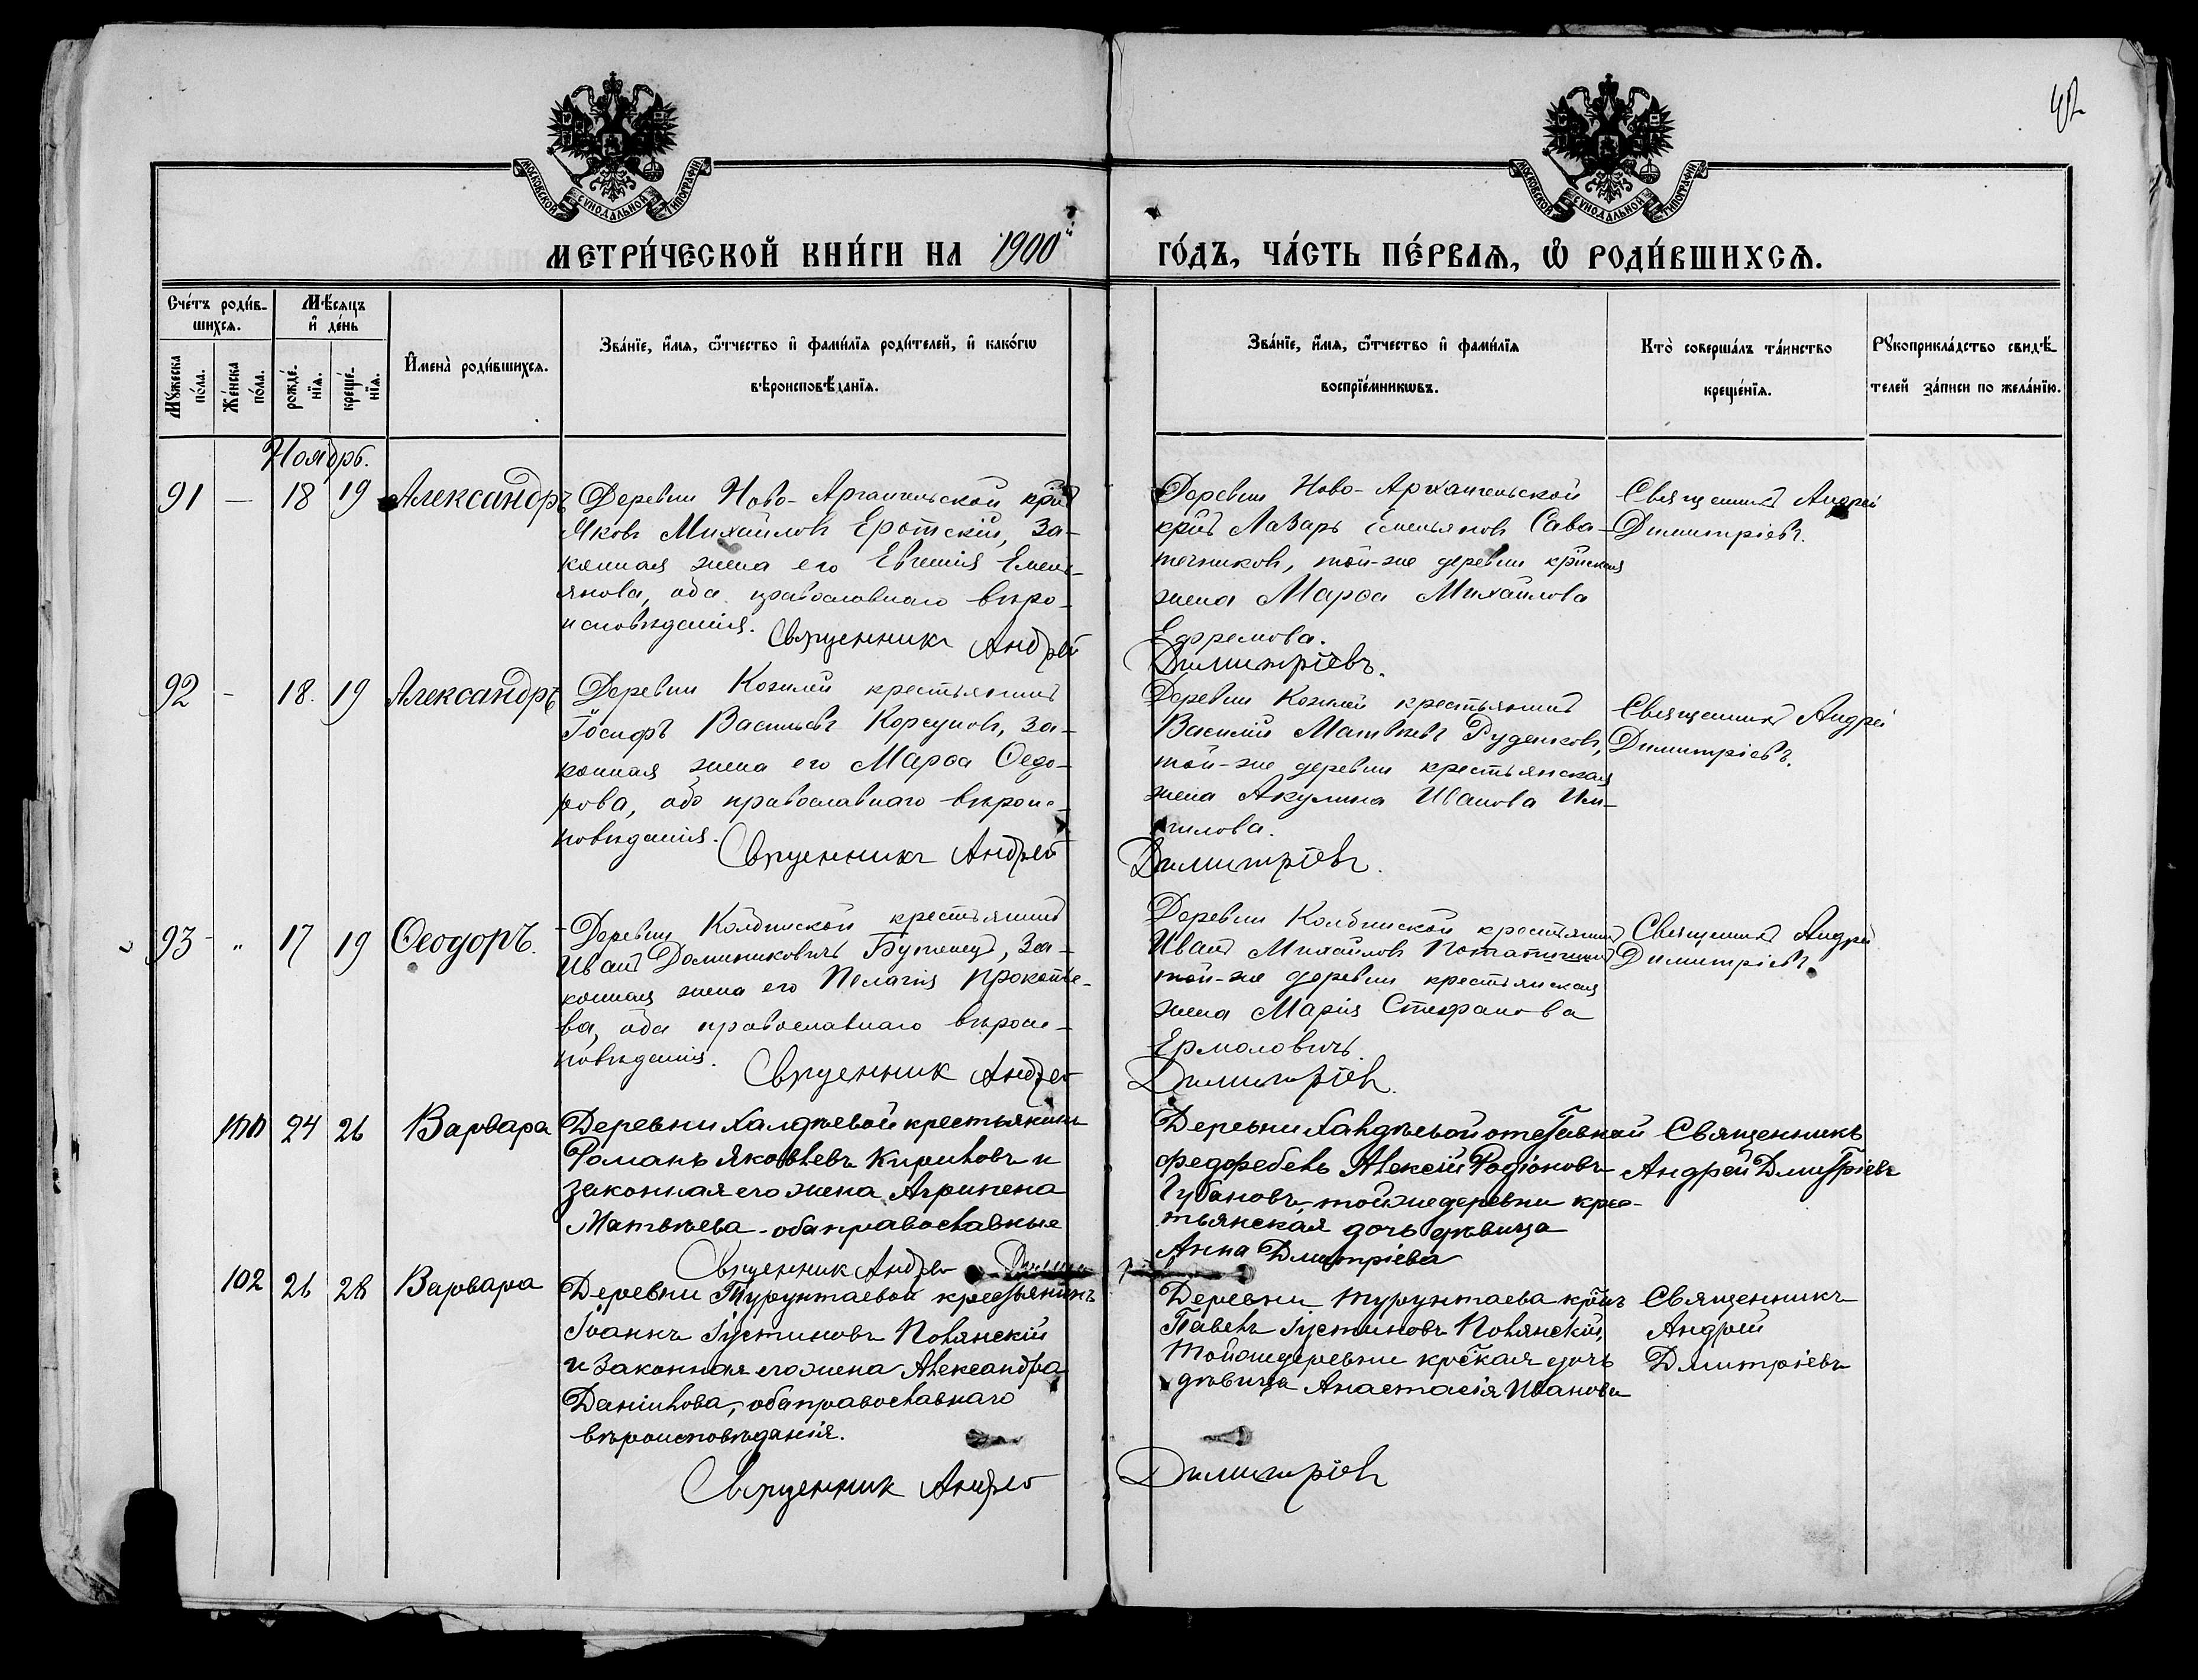 42
МОСКОВСКОЙ СѴНОДАЛЬНОЙ ТИПОГРАФІИ
МОСКОВСКОЙ СѴНОДАЛЬНОЙ ТИПОГРАФІИ
МЕТРИ́ЧЕСКОЙ КНИ́ГИ НА 1900й ГО́ДЪ, ЧА́СТЬ ПЕ́РВАѦ, Ѽ РОДИ́ВШИХСѦ.
Сче́тъ роди́вшихсѧ.
Мꙋ́жеска по́ла.
Же́нска по́ла.
Мѣ́сяцъ и҆ де́нь
рожде́нїѧ.
креще́нїѧ.
И҆мена̀ роди́вшихсѧ.
Зва́нїе, и҆́мѧ, ѻ҆́тчество и҆ фами́лїѧ роди́телей, и҆ како́гѡ
вѣроисповѣ́данїѧ.
Зва́нїе, и҆́мѧ, ѻ҆́тчество и҆ фами́лїѧ
воспрїе́мникѡвъ.
Кто̀ соверша́лъ та́инство
креще́нїѧ.
Рꙋкоприкла́дство свидѣ́
телей за́писи по жела́нїю.
Ноябрь.
91 — 18 19 Александръ
Деревни Ново-Архангельской крнъ
Яковъ Михайловъ Еротскій, за-
конная жена его Евгенія Емель-
янова, оба православнаго вѣро-
исповѣданія.
Священникъ Андрей
Деревни Ново-Архангельской
крнъ Лазарь Емельяновъ Сава-
течниковъ, той-же деревни крнская
жена Марѳа Михайлова
Ефремова.
Димитріевъ.
Священникъ Андрей
Димитріевъ.
92 - 18. 19 Александръ
Деревни крестьянинъ
Іосифъ Васильевъ Корсуновъ, за-
конная жена его Марѳа Ѳедо-
рова, обо православнаго вѣроис-
повѣданія.
Священникъ Андрей
Деревни крестьянинъ
Василій Матвѣевъ Руденковъ,
той-же деревни крестьянская
жена Акулина Иванова
Димитріевъ.
Священникъ Андрей
Димитріевъ.
93 - „ 17 19 Ѳеодоръ.
Деревни Колбинской крестьянинъ
Иванъ Доминиковичъ Бутенецъ, за-
конная жена его Пелагія Прокопье-
ва, оба православнаго вѣроис-
повѣданія.
Священник Андрей
Деревни Колбинской крестьянинъ
Иванъ Михайловъ
той-же деревни крестьянская
жена Марія Стефанова
Ермоловичъ.
Димитріевъ.
Священникъ Андрей
Димитріевъ.
24 26 Варвара
Деревни Халдѣевой крестьянинъ
Романъ Яковлевъ Кириловъ и
законная его жена Агрипена
Матвѣева - оба православные
Священник Андрей
Деревни Халдѣевой отставной
федфебель Алексій Родіоновъ
Губановъ, той же деревни крес-
тьянская дочь дѣвица
Анна Дмитріева
Священникъ
Андрей Дмитріевъ
102 26 28 Варвара
Деревни Турунтаевой крестьянинъ
Іоаннъ Іустиновъ Полянскій
и законная его жена Александра
Даніилова, оба православнаго
вѣроисповѣданія.
Священник Андрей
Деревни Турунтаева крнъ
Павелъ Іустиновъ Полянскій,
той же деревни крская дочь
дѣвица Анастасія Иванова
Димитріевъ
Священникъ
Андрей
Дмитріевъ